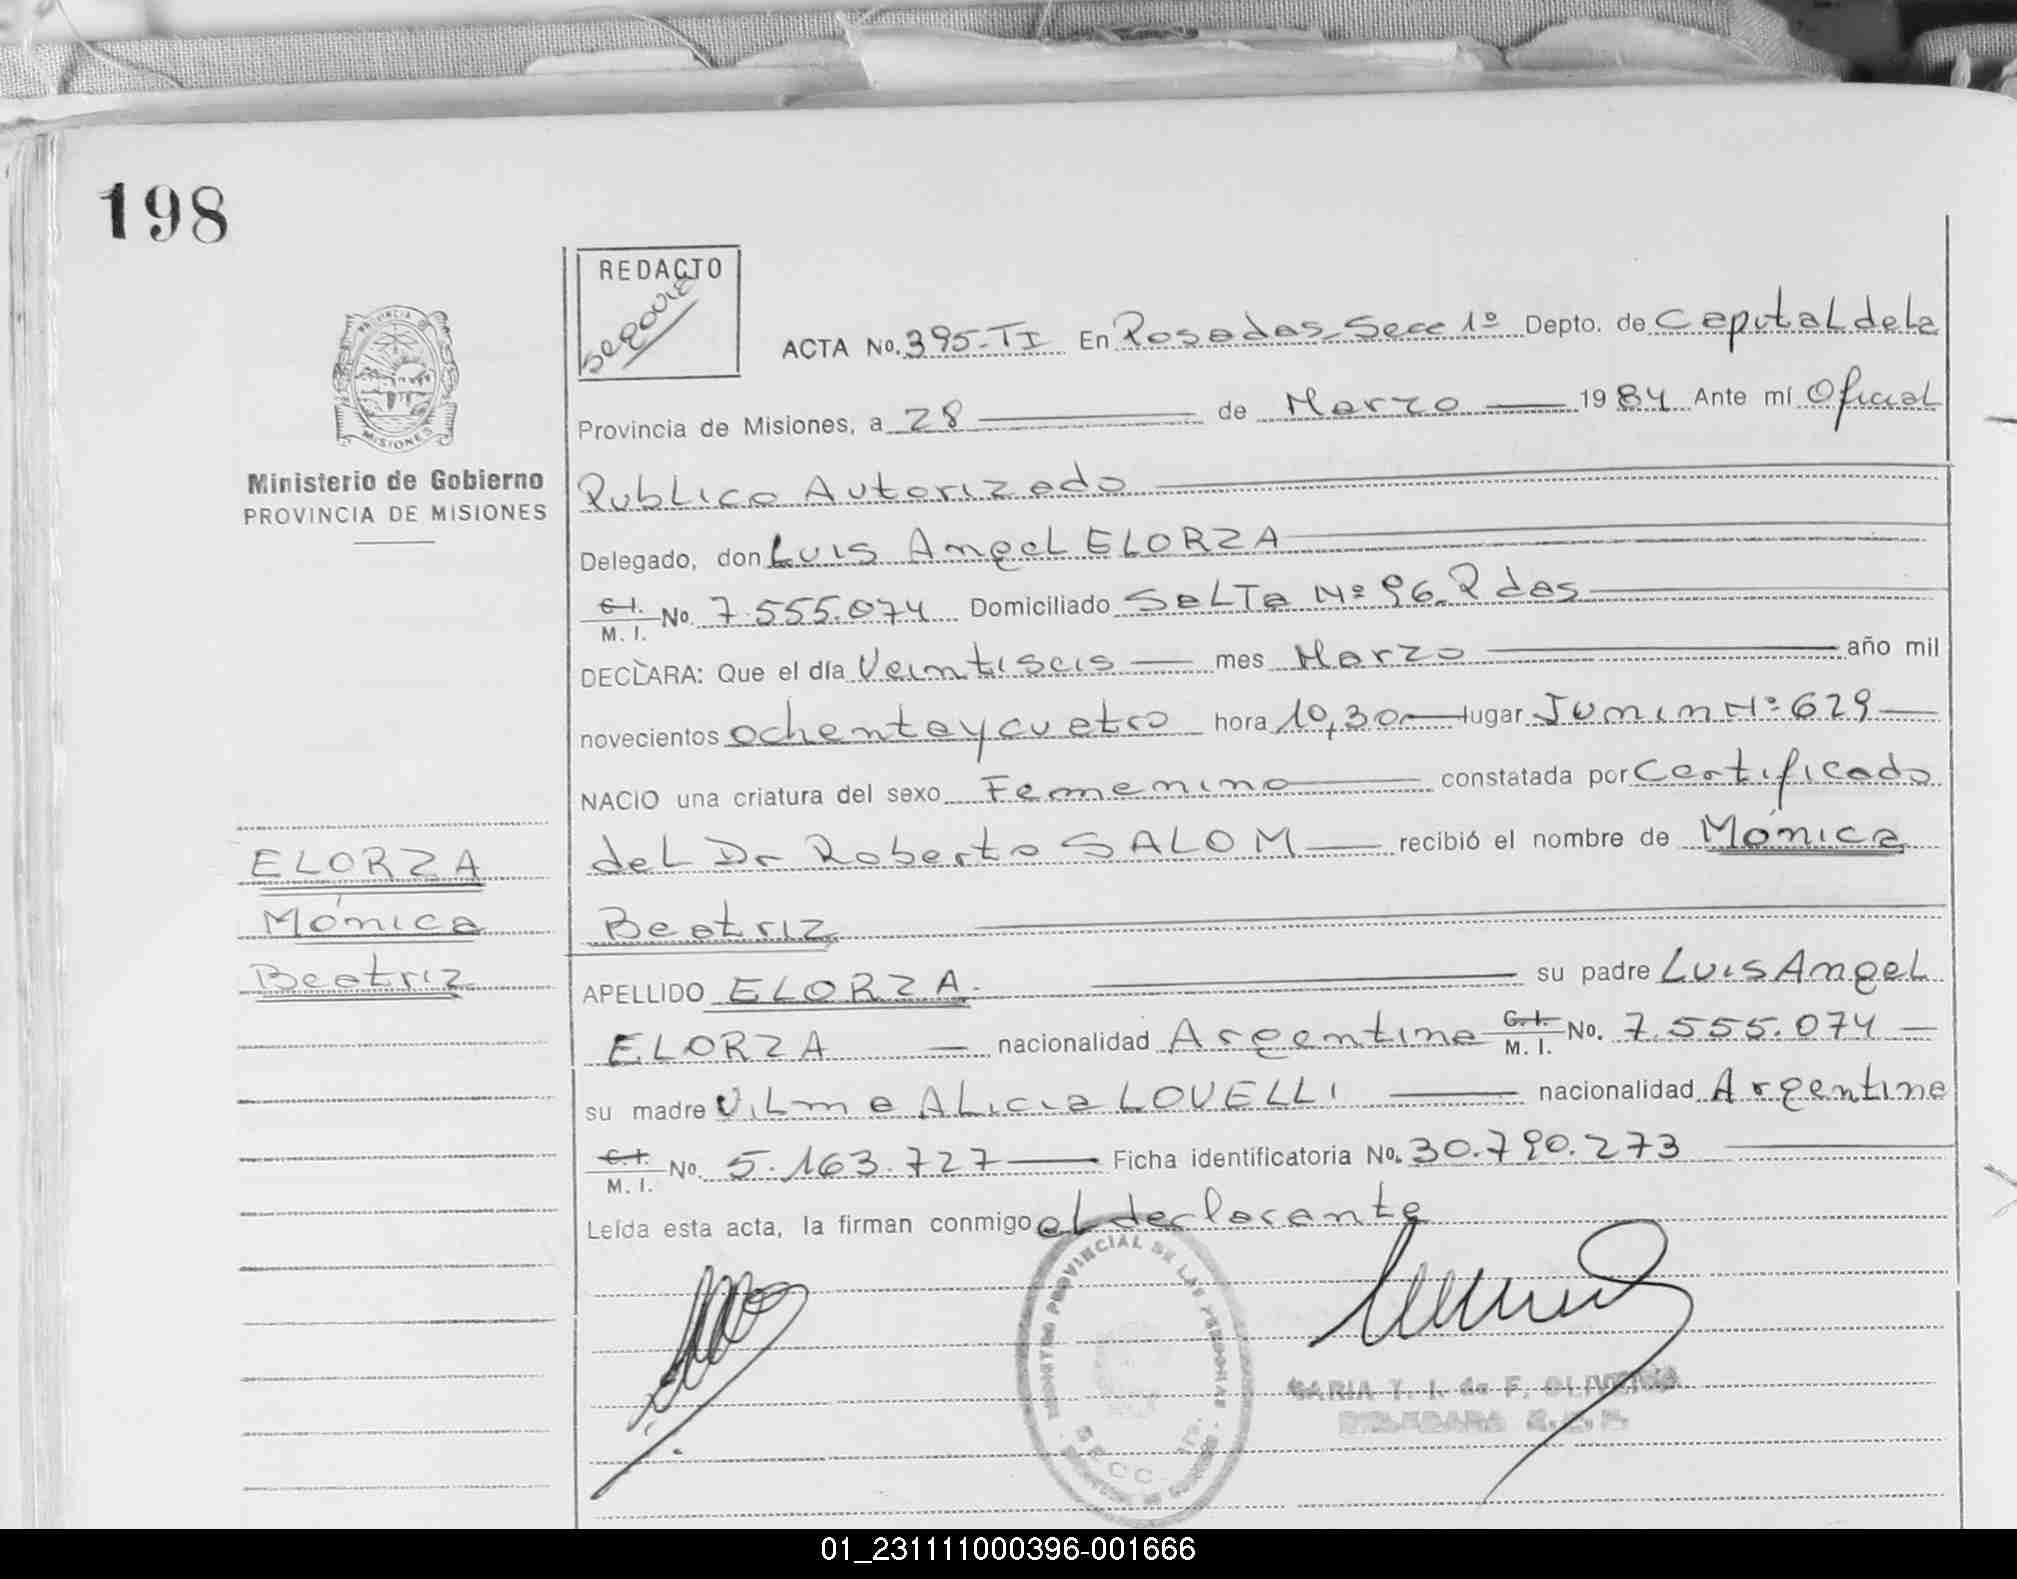 198
REDACTO
ACTA No. 395-TI En Posadas Secc 1º Depto. de Capital de la
Provincia de Misiones, a 28 de Marzo 1984 Ante mí Oficial
PROVINCIA DE
MISIONES
Ministerio de Gobierno
PROVINCIA DE MISIONES
Publico Autorizado
Delegado, don Luis Angel ELORZA
C. I. M. I. No. 7.555.074 Domiciliado Salta Nº 96. Pdas
DECLARA: Que el día Veintiseis mes Marzo año mil
novecientos ochenta y cuatro hora 10,30 lugar Junin Nº 629
NACIO una criatura del sexo Femenino constatada por Certificado
del Dr Roberto SALOM recibió el nombre de Mónica
Beatriz
ELORZA
Mónica
Beatriz
APELLIDO ELORZA. su padre Luis Angel
ELORZA nacionalidad Argentina C. I. M. I. No. 7.555.074
su madre Vilma Alicia LOVELLI nacionalidad Argentina
C. I. M. I. No. 5.163.727 Ficha identificatoria No. 30.790.273
Leída esta acta, la firman conmigo el declarante
PROVINCIAL DE LAS PERSONAS
SECC. 1ª
T. I. de F. OLIVEIRA
01_231111000396-001666